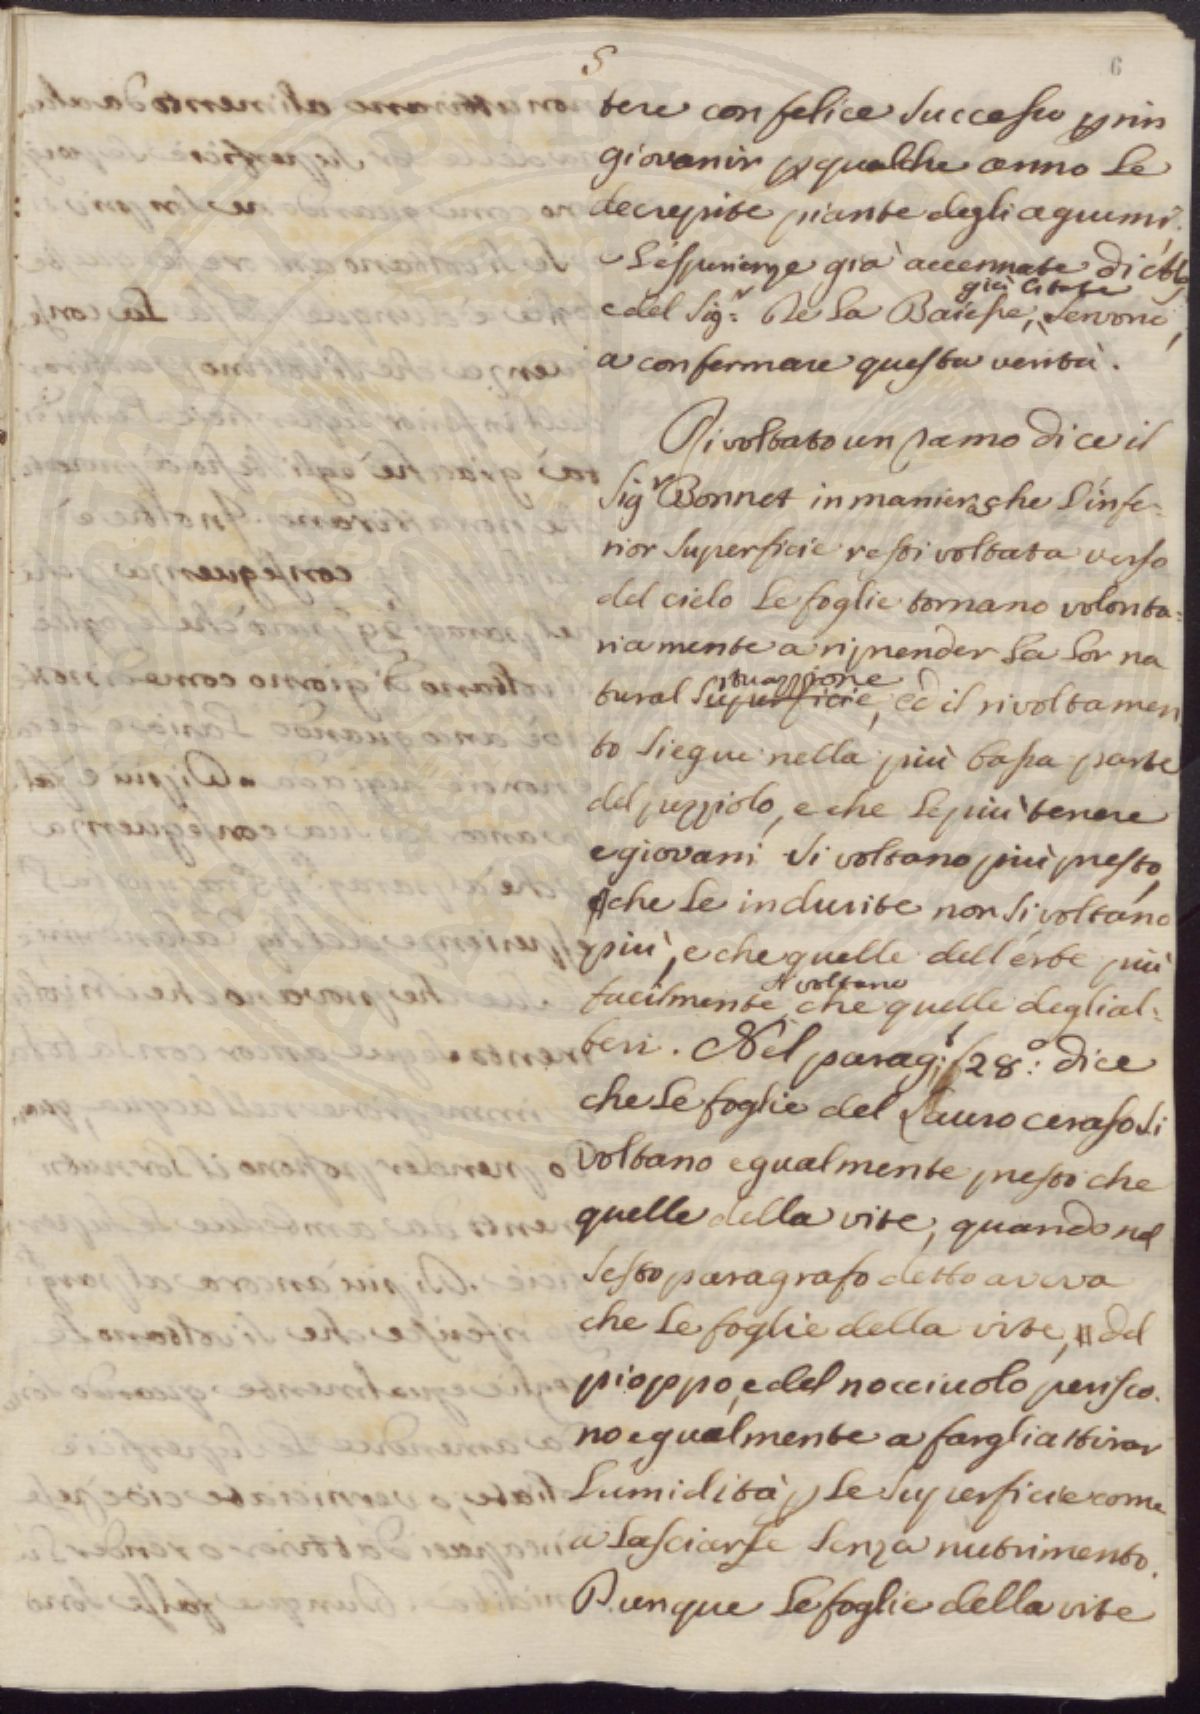 5
6
tere con felice successo p rin
giovanir p qualche anno le
decrepite piante degli agrumi.
L'esperienze già accennate di
già citate
e del Sig.r De La Baisse, servono
a confermare questa verità.
Rivoltato un ramo dice il
Sig.r Bonnet in maniera che l'infe-
rior superficie resti voltata verso
del cielo le foglie tornano volonta-
riamente a riprender la lor na
situazzione
tural superficie, ed il rivoltamen
to siegue nella più bassa parte
del pezziolo, e che le più tenere
e giovani si voltano più presto,
che le indurite non si voltano
più, e che quelle dell'erbe più
si voltano
facilmente che quelle degl'al-
beri. Nel parag.f 28.o dice
che le foglie del Lauro ceraso si
voltano egualmente presto che
quelle della vite, quando nel
sesto paragrafo detto aveva
che le foglie della vite, del
pioppo, e del nocciuolo perisco-
no egualmente a fargli attirar
l'umidità p le superficie come
a lasciarle senza nutrimento.
Dunque le foglie della vite